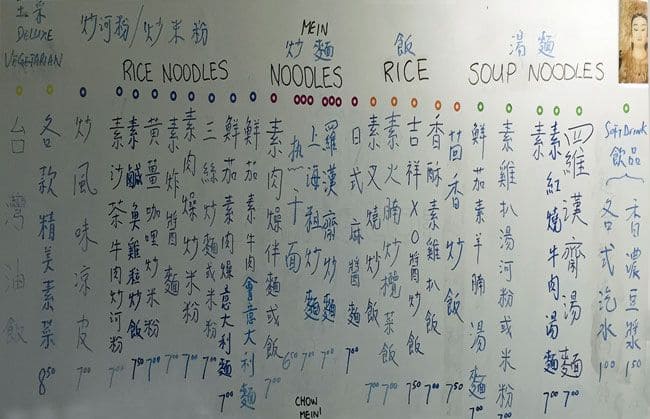 DELUXE
VEGETARIAN
炒河粉/炒米粉
RICE NOODLES
MEIN
炒麵
NOODLES
飯
RICE
湯麵
SOUP NOODLES
台灣油飯
各款精美素菜 8.50
炒風味涼皮 7.00
素沙茶牛肉炒河粉 7.00
素鹹魚雞粒炒飯 7.50
黃薑咖哩炒米粉 7.00
素炸醬麵 7.00
素肉燥炒米粉 7.00
三絲炒麵或米粉 7.00
鮮茄素肉燥意大利麵 7.00
鮮茄素牛肉會意大利麵
素肉燥伴麵或飯 7.00
6.50
上海粗炒麵 7.00
羅漢齋炒麵 7.00
日式麻醬麵 7.00
素叉燒炒飯 7.00
素火腩炒欖菜飯 7.00
吉祥XO醬炒飯 7.50
香酥素雞扒飯 7.00
茴香炒飯 7.50
鮮茄素羊腩湯麵 7.00
素雞扒湯河粉或米粉 7.00
素紅燒牛肉湯麵 7.00
四羅漢齋湯麵 7.00
Soft Drink
飲品
各式汽水 1.00
香濃豆漿 1.50
CHOW
MEIN!